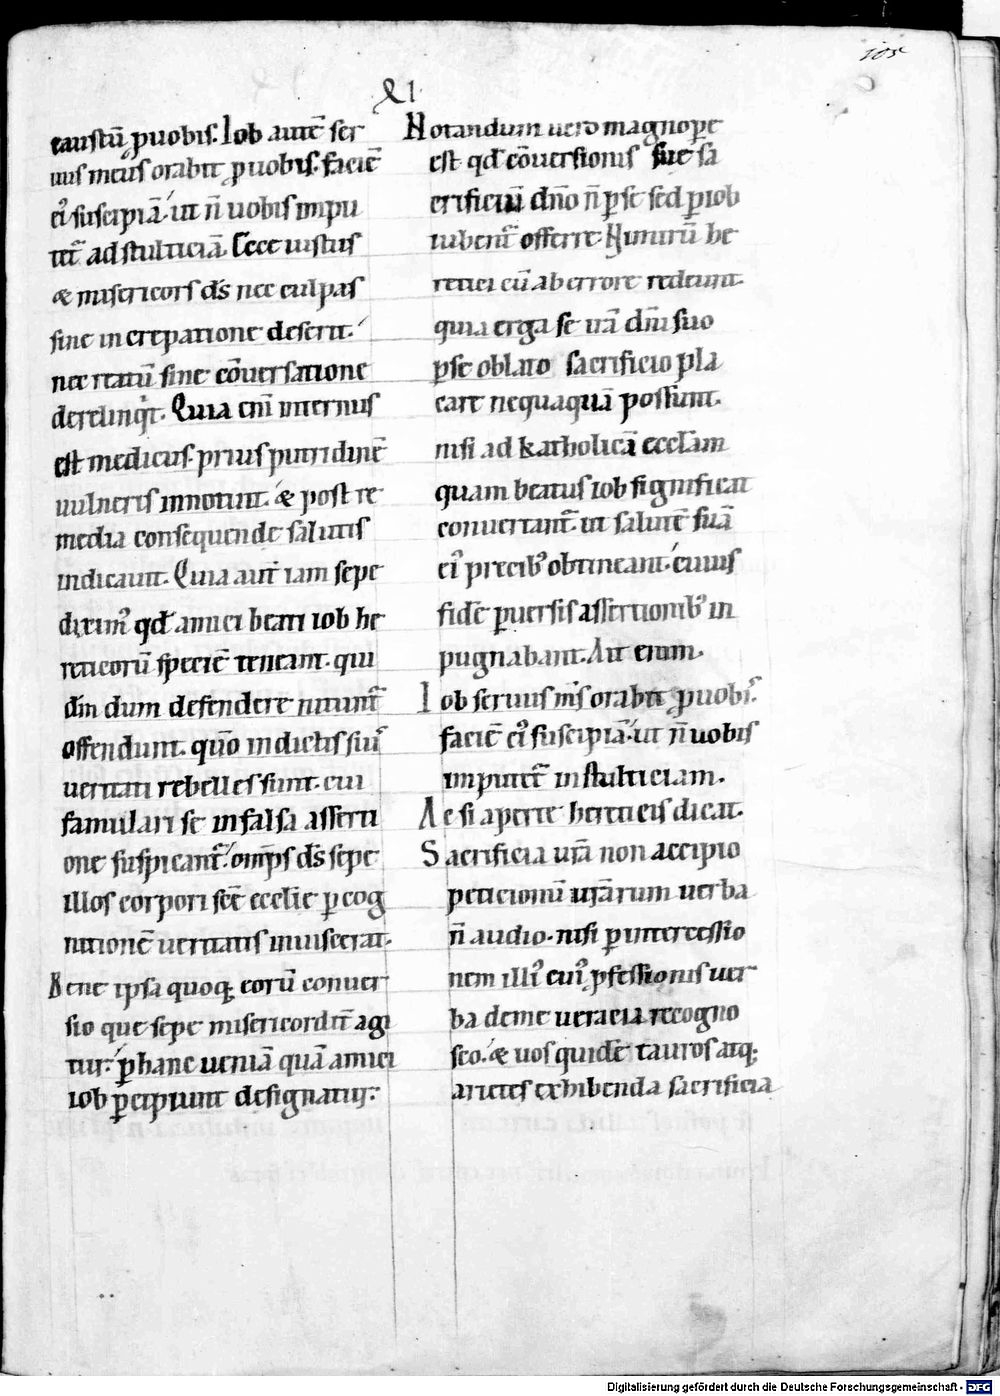 105
XI
caustū ꝓuobis. Iob autē ser
uus meus orabit ꝓuobis. faciē
ei᾽ suscipiā. ut n̄ uobis impu
tet᷑ ad stulticiā. Ecce iustus
& misericors ds̄ nec culpas
sine increpatione deserit.
nec reatū sine cōuersatione
derelinq̇t. Quia eni᷑ internus
est medicus. prius putridinē
uulneris innotuit. & post re
media consequende salutis
indicauit. Quia aut̄ iam sepe
dixim᾽ qd̄ amici beati iob he
reticorū speciē teneant. qui
dm̄ dum defendere nitunt᷑
offendunt. quō in dictis suis
ueritati rebelles sunt. cui
famulari se in falsa asserti
one suspicant᷑. omp̄s ds̄ sepe
illos corpori scē ecclie ꝑ cog
nitionē ueritatis inuiscerat.
Bene ipsa quoq; eorū conuer
sio que sepe misericordit᷑ agi
tur. ꝑ hanc ueniā quā amici
iob ꝑcipiunt designatur.
Notandum uero magnopere
est qd̄ cōuersionis sue sa
crificiū dn̄o n̄ ꝑ se sed ꝑ iob
iubent᷑ offerre. Nimirū he
retici cū ab errore redeunt.
quia erga se irā dn̄i suo
ꝑ se oblato sacrificio pla
care nequaquā possunt.
nisi ad katholicā eccl̄am
quam beatus iob significat
conuertant᷑. ut salutē suā
ei᾽ precib᾽ obtineant. cuius
fidē ꝑuersis assertionib᾽ in
pugnabant. Ait enim.
Iob seruus ms̄ orabit ꝓuobis.
faciē ei᾽ suscipiā. ut n̄ uobis
imputet᷑ in stulticiam.
Ac si aperte hereticis dicat.
Sacrificia ur̄a non accipio
peticionū ur̄arum uerba
n̄ audio. nisi ꝑ intercessio
nem illi᾽ cui᾽ ꝓfessionis uer
ba de me ueracia recogno
sco. & uos quidē tauros atq;
arietes exhibenda sacrificia
Digitalisierung gefördert durch die Deutsche Forschungsgemeinschaft - DFG